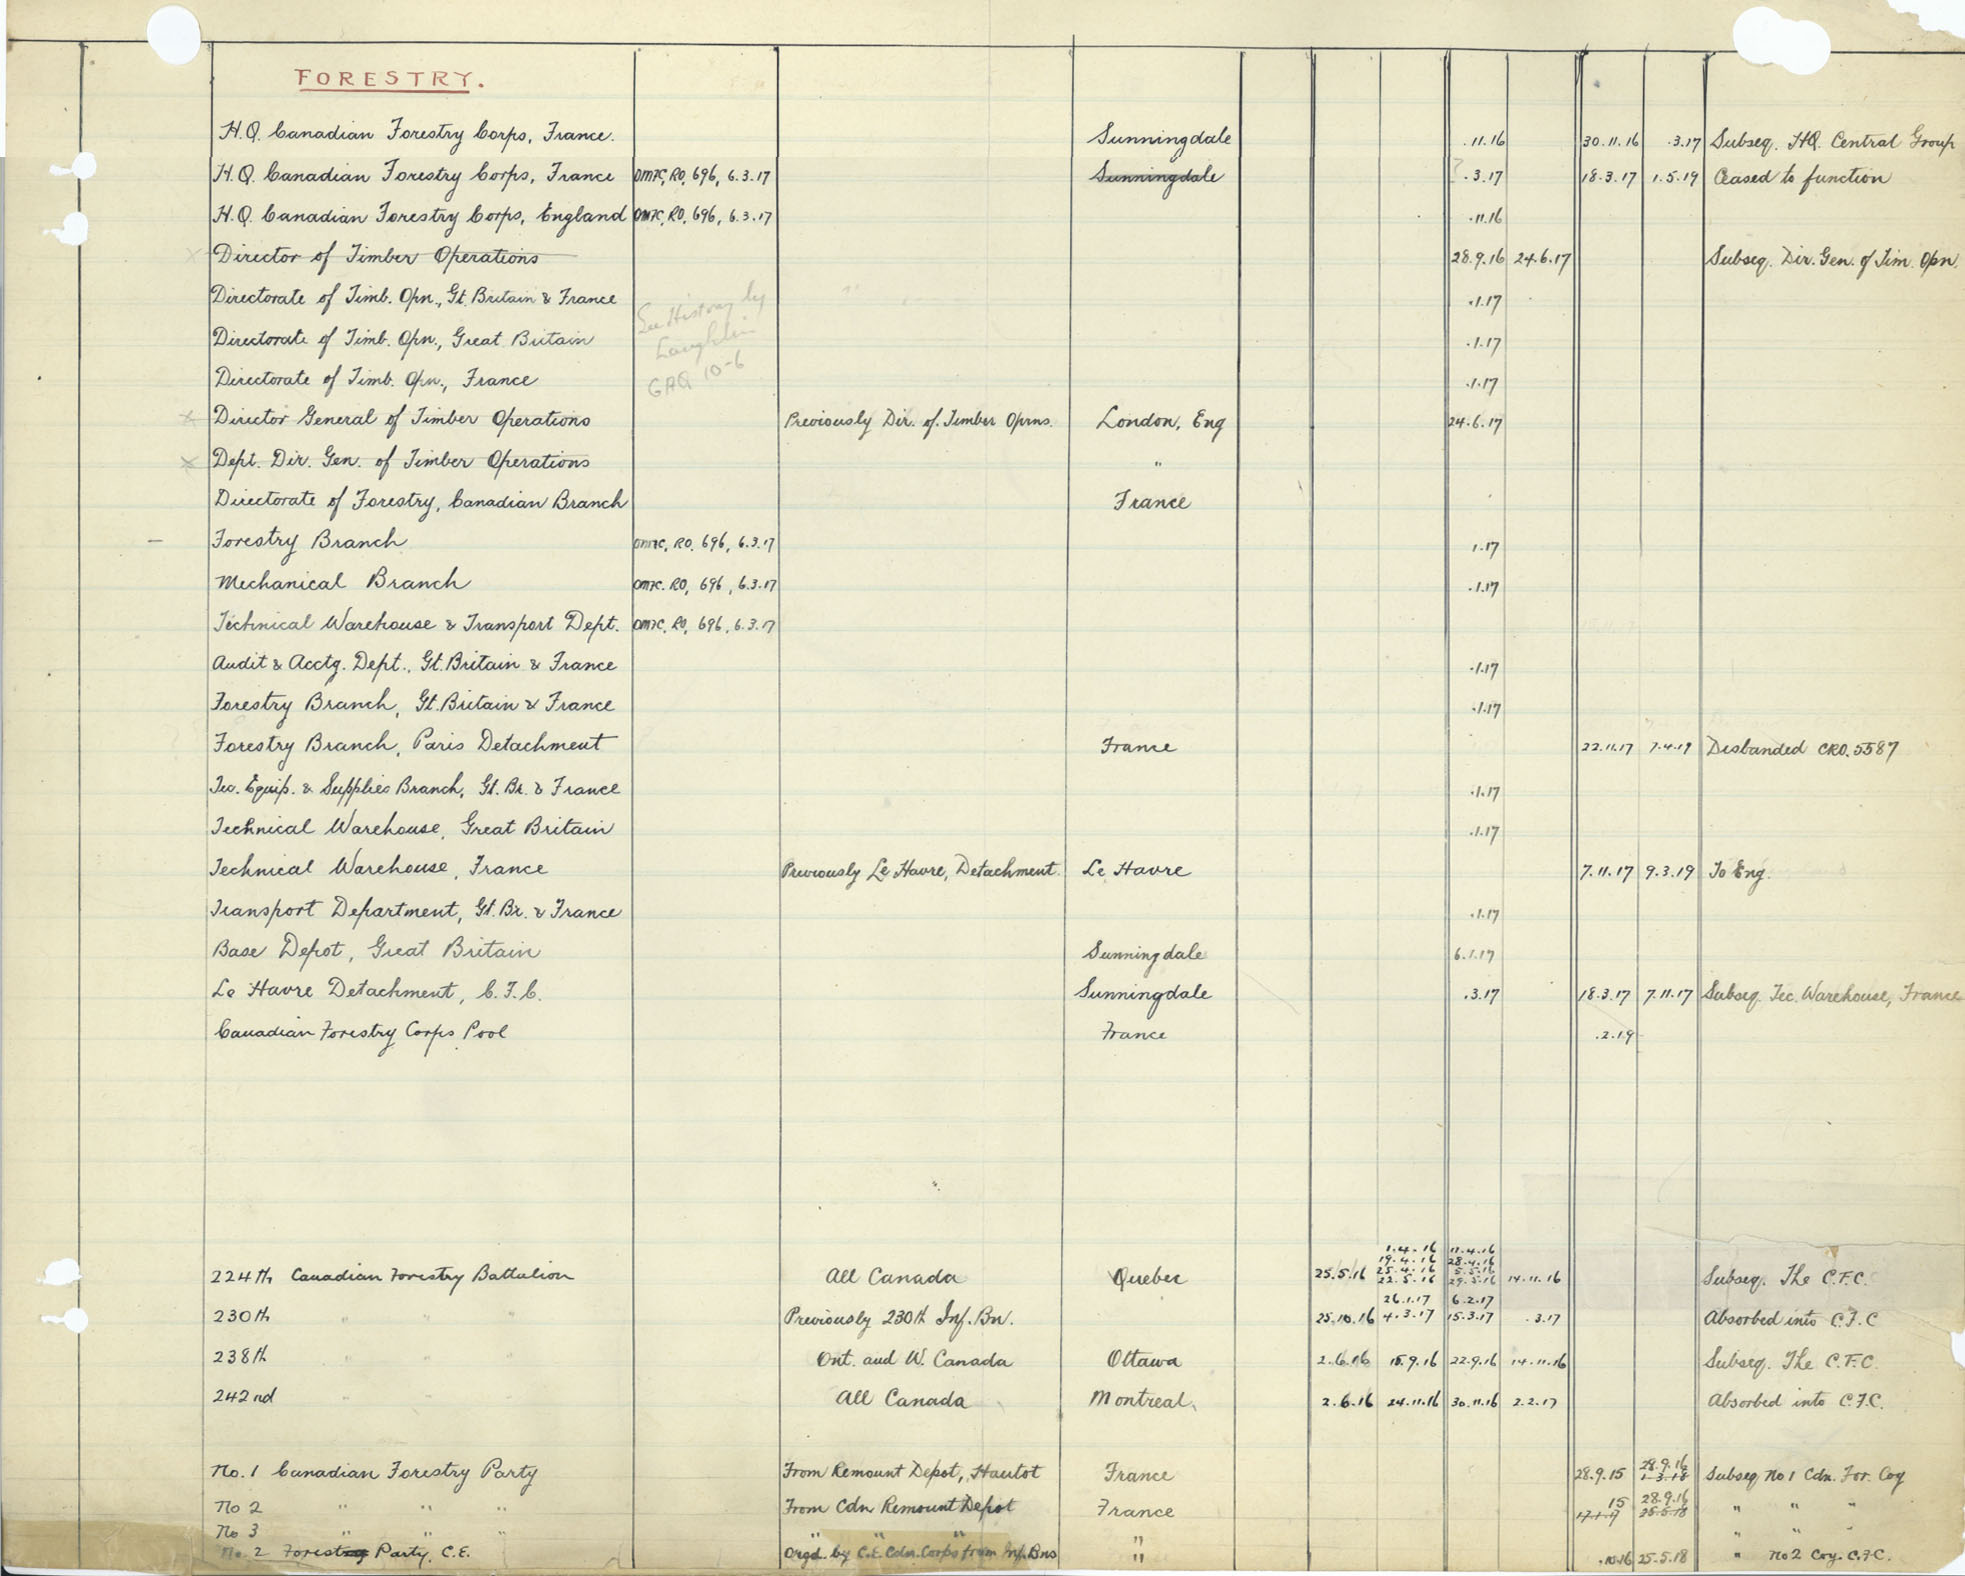 FORESTRY.
H.Q. Canadian Forestry Corps, France. Sunningdale .11.16 30.11.16 .3.17 Subseq. HQ. Central Group
H.Q. Canadian Forestry Corps, France OMFC, RO, 696, 6.3.17 Sunningdale ? .3.17 18.3.17 1.5.19 Ceased to function
H.Q. Canadian Forestry Corps, England OMFC, RO, 696, 6.3.17 .11.16
x Director of Timber Operations 28.9.16 24.6.17 Subseq. Dir. Gen. of Tim. Opn.
Directorate of Timb. Opn., Gt. Britain & France See History by .1.17
Directorate of Timb. Opn., Great Britain .1.17
Directorate of Timb. Opn., France GAQ 10-6 .1.17
x Director General of Timber Operations Previously Dir. of. Timber Oprns. London, Eng 24.6.17
x Dept. Dir. Gen. of Timber Operations "
Directorate of Forestry, Canadian Branch France
- Forestry Branch OMFC, RO, 696, 6.3.17 1.17
Mechanical Branch OMFC. RO, 696, 6.3.17 .1.17
Technical Warehouse & Transport Dept. OMFC, RO, 696, 6.3.17
Audit & Acctg. Dept., Gt. Britain & France .1.17
Forestry Branch, Gt. Britain & France .1.17
Forestry Branch, Paris Detachment France 22.11.17 7.4.19 Disbanded CRO. 5587
Tec. Equip. & Supplies Branch, Gt. Br. & France .1.17
Technical Warehouse, Great Britain .1.17
Technical Warehouse, France Previously Le Havre, Detachment. Le Havre 7.11.17 9.3.19 To Eng.
Transport Department, Gt. Br. & France .1.17
Base Depot, Great Britain Sunningdale 6.1.17
Le Havre Detachment, C.F.C. Sunningdale .3.17 18.3.17 7.11.17 Subseq. Tec. Warehouse, France
Canadian Forestry Corps Pool France .2.19
1.4.16 11.4.16
19.4.16 28.4.16
224th Canadian Forestry Battalion All Canada Quebec 25.5.16 25.4.16 5.5.16 14.11.16 Subseq. The C.F.C.
22.5.16 29.5.16
26.1.17 6.2.17
230th " " Previously 230th Inf. Bn. 25.10.16 4.3.17 15.3.17 .3.17 Absorbed into C.F.C
238th " " Ont. and W. Canada Ottawa 2.6.16 15.9.16 22.9.16 14.11.16 Subseq. The C.F.C.
242nd " " All Canada Montreal. 2.6.16 24.11.16 30.11.16 2.2.17 Absorbed into C.F.C.
No. 1 Canadian Forestry Party From Remount Depot, Hautot France 28.9.15 28.9.16 1.3.18 Subseq No 1 Cdn. For. Coy
No 2 " " " From Cdn Remount Depot France 15 28.9.16 " " "
17.1.17 25.5.18
No 3 " " " " " " " " " "
No. 2 Forestry Party, C.E. Orgd. by C.E. Cdn. Corps from Inf. Bns " .10.16 25.5.18 " No 2 Coy. C.F.C.